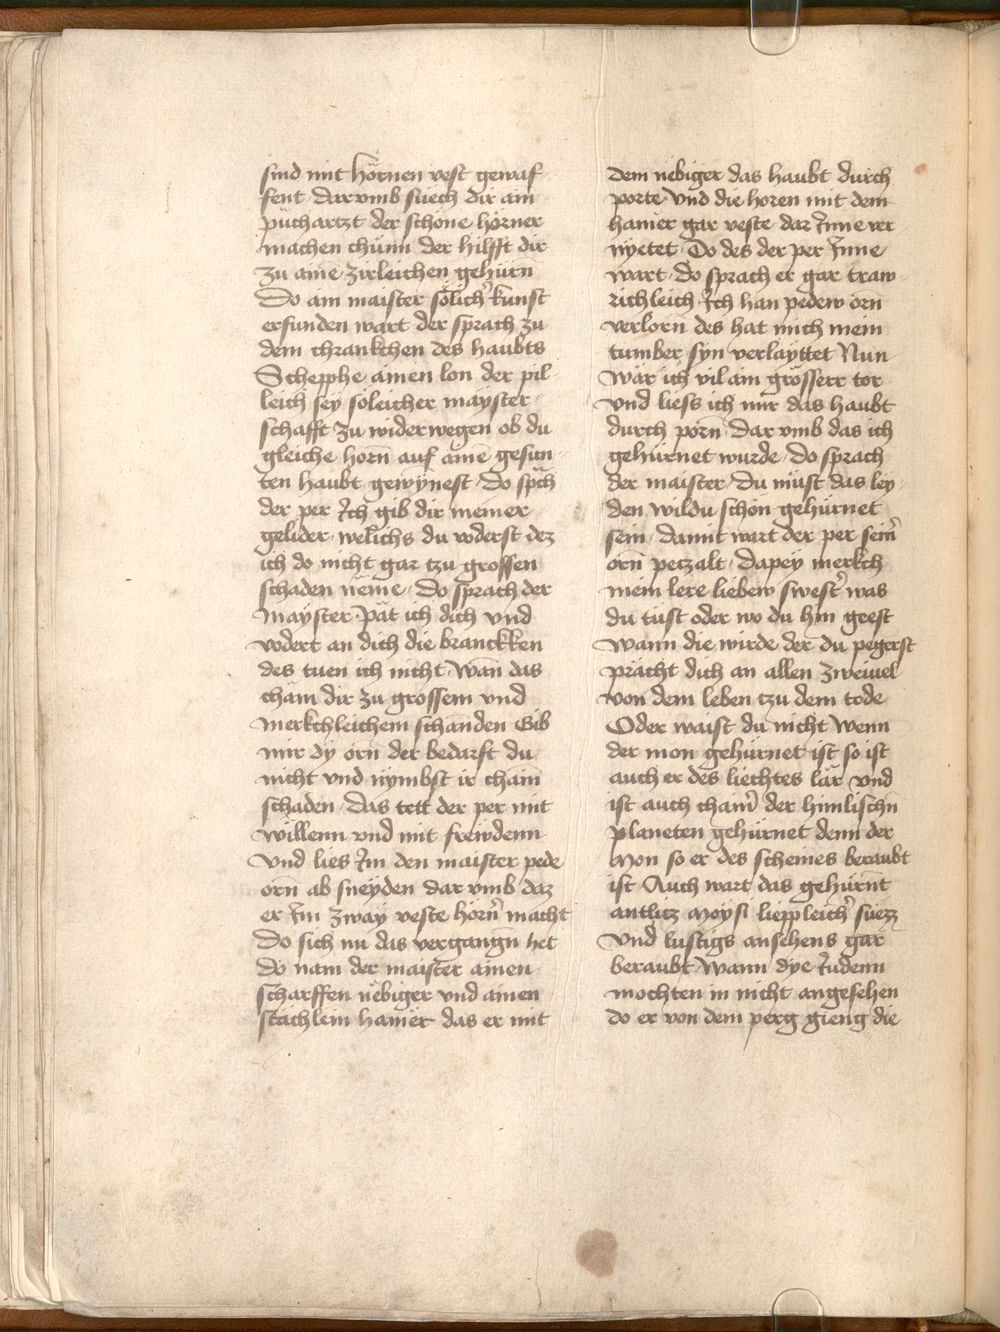 sind mit hörnen vest gewaf
fent · Dar vmb suech dir ain
püchartzt der schöne hörner
machen chünn der hilfft dir
zu aine zirleichen gehürn
Do ain maister sölicher kunst
erfunden wart der sprach zu
dem chrankchen des haubts
Schepphe ainen lon der pil
leich sey söleicher mayster
schafft zu widerwegen ob du
gleiche horn auf aine gesun
ten haubt gewynest · Do sprach
der per Ich gib dir meiner
gelider · welichs du voderst dez
ich do nicht gar tzu grossen
schaden neme · Do sprach der
mayster Pät ich dich vnd
vodert an dich die branckken
des tuen ich nicht · Wan das
chäm dir zu grossem vnd
merkchleichem schanden Gib
mir dy orn der bedarft du
nicht vnd nymbst ir chain
schaden · Das tett der per mit
willenn vnd mit frewdenn
Vnd lies Im den maister pede
orn ab sneyden dar vmb daz
er Im zway veste hörner macht
Do sich nu das vergangn het
do nam der maister ainen
scharffen nebiger vnd ainen
stächlem hamer das er mit
Dem nebiger das haubt durch
porte Vnd die horen mit dem
hamer gar veste dar Inne ver
nyetet · Do des der per Inne
wart · do sprach er gar traw
richleich Ich han pedew orn
verlorn des hat mich mein
tumber syn verlayttet Nun
wär ich vil ain grösserr tor
vnd liess ich mir das haubt
durch porn · Dar vmb das ich
gehürnet wurde · Do sprach
der maister · Du müst das ley
den wildu schön gehürnet
sein · damit wart der per seiner
orn peczalt · Dapey merkch
mein lere liebew swester was
du tüst oder wo du hin geest
wann die wirde der du pegerst
prächt dich an allen zweiuel
von dem leben tzu dem tode
Oder waist du nicht wenn
der mon gehürnet ist so ist
auch er des liechtes lär vnd
ist auch chainer der himlischn
planeten gehürnet denn der
Mon so er des scheines beraubt
ist Auch wart das gehürnt
antlitz Moysi lieppleicher süezz
Vnd lustigs ansehens gar
beraubt · Wann dye Iudenn
mochten in nicht angesehen
do er von dem perg gieng die